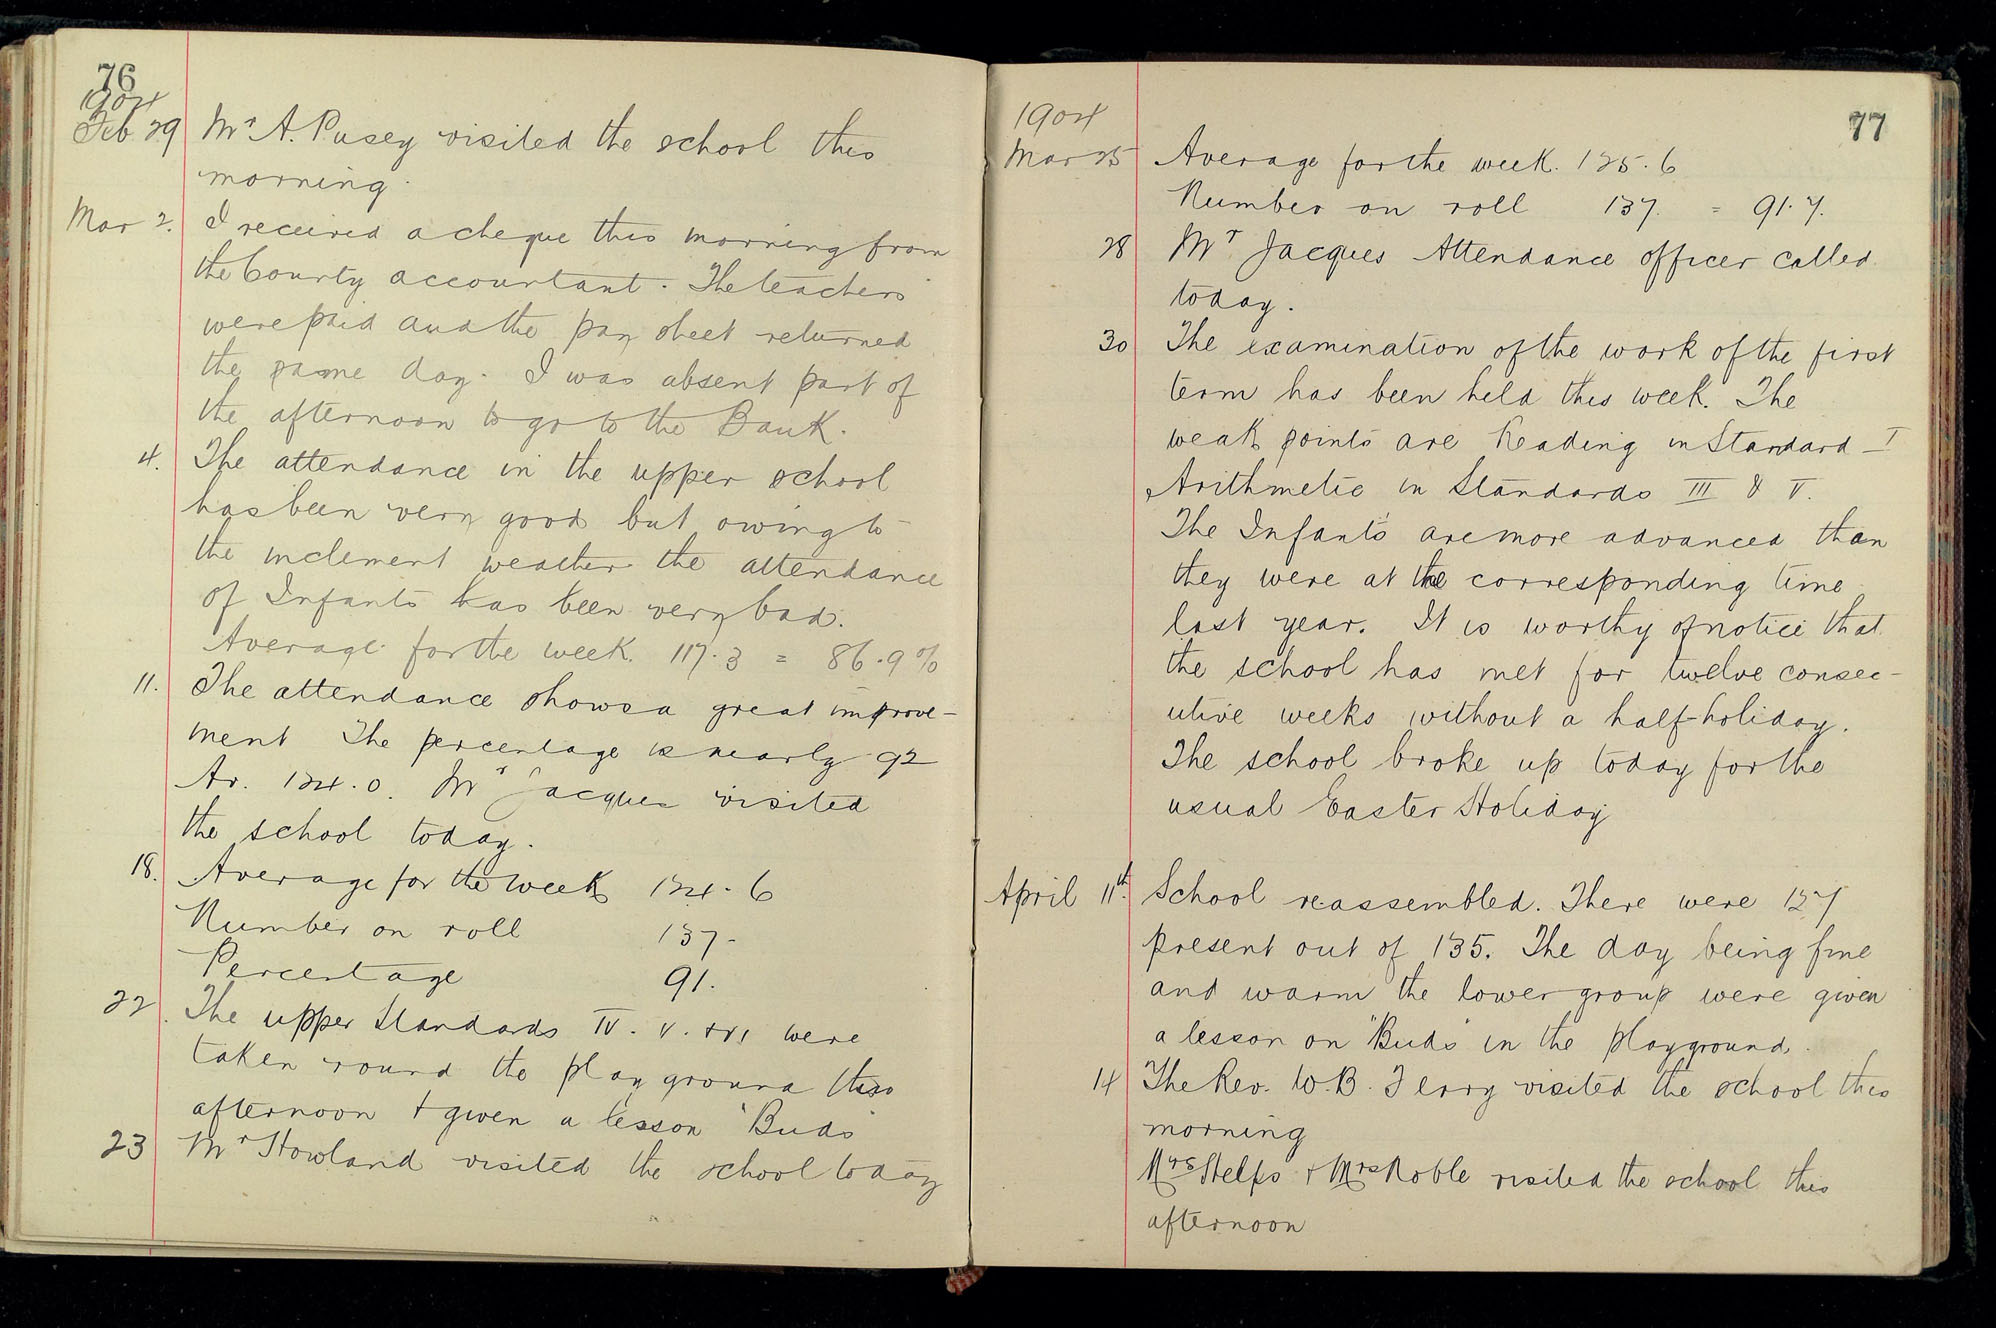 76
1904
Feb 29 Mr A. Pusey visited the school this
morning.
Mar 2. I received a cheque this morning from
the County accountant. The teachers
were paid and the pay sheet returned
the same day. I was absent part of
the afternoon to go to the Bank.
4. The attendance in the upper school
has been very good but owing to
the inclement weather the attendance
of Infants has been very bad.
Average for the week. 117.3 = 86.9%
11. The attendance shows a great improve-
ment The percentage is nearly 92
Av. 124.0. Mr Jacques visited
the school today.
18. Average for the week 124.6
Number on roll 137-
Percentage 91.
22. The upper Standards IV. V. & VI were
taken round the play ground this
afternoon & given a lesson "Buds"
23 Mr Howland visited the school today
77
1904
Mar 25 Average for the week. 125.6
Number on roll 137. = 91.7.
28 Mr Jacques Attendance officer called
today.
30 The examination of the work of the first
term has been held this week. The
weak points are Reading in Standard I
Arithmetic in Standards III & V.
The Infants are more advanced than
they were at the corresponding time
last year. It is worthy of notice that
the school has met for twelve consec-
utive weeks without a half-holiday.
The school broke up today for the
usual Easter Holiday
April 11th. School reassembled. There were 127
present out of 135. The day being fine
and warm the lower group were given
a lesson on "Buds" in the playground.
14 The Rev. W. B. visited the school this
morning
Mrs Stelfs & Mrs Noble visited the school this
afternoon